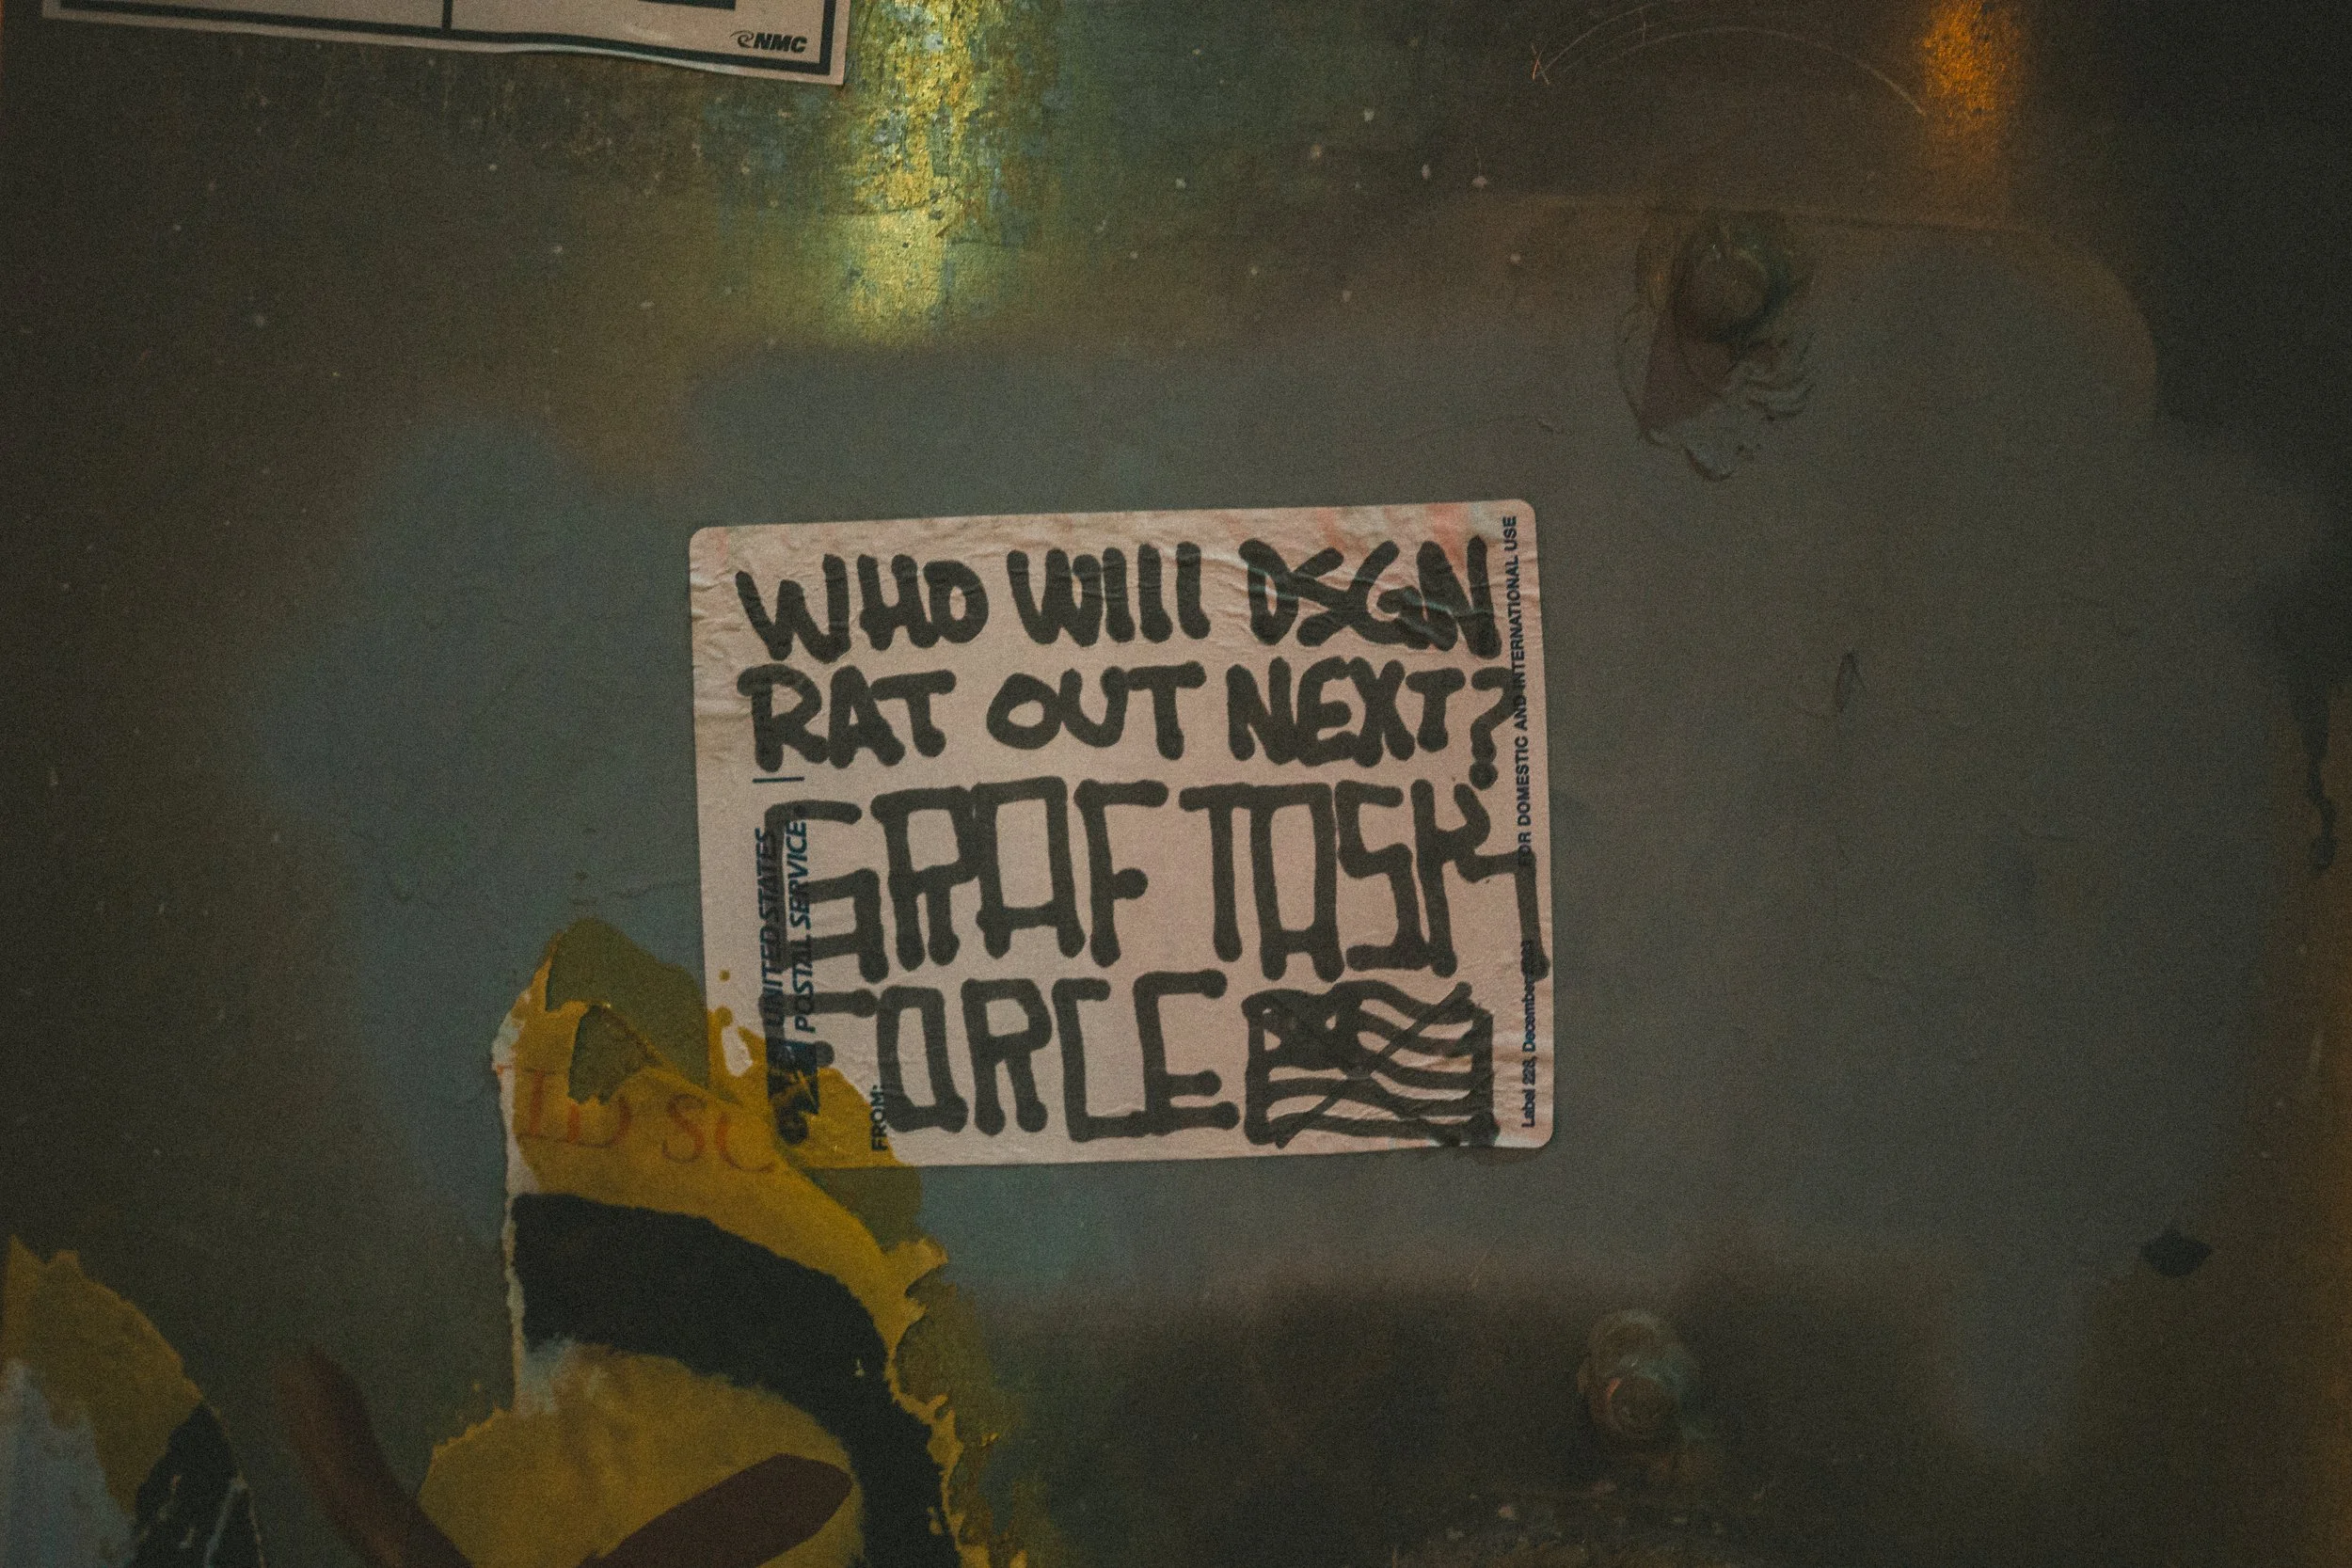 NMC
WHO WIll DSGN
RAT OUT NEXT?
GRAF TASK
FORCE
UNITED STATES
POSTAL SERVICE
FROM:
FOR DOMESTIC AND INTERNATIONAL USE
Label 228, December
ID SC